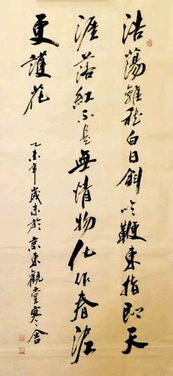 浩荡離愁白日斜吟鞭東指即天
涯落紅不是無情物化作春泥
更護花
乙未年歲末於京東觀堂寒舍